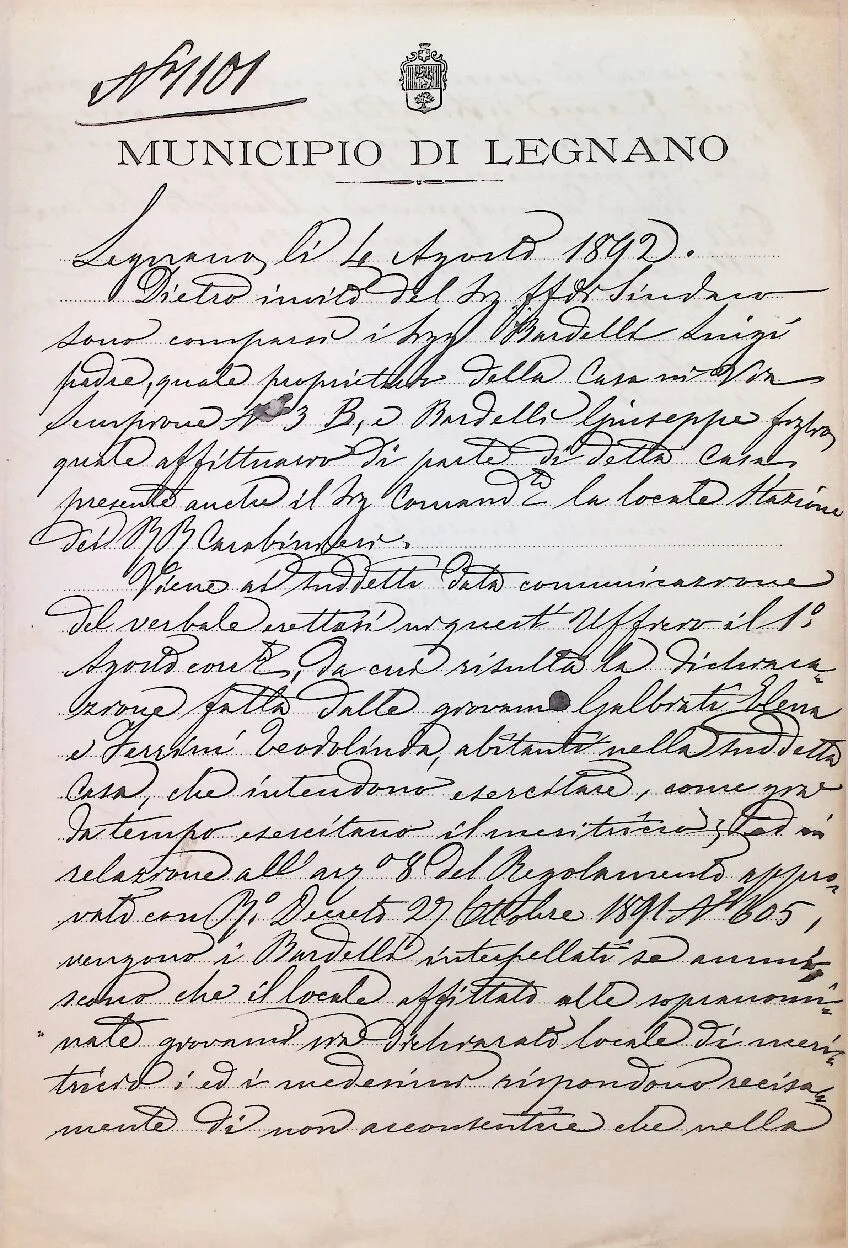 N° 1101
MUNICIPIO DI LEGNANO
Legnano, li 4 Agosto 1892.
Dietro invito del Sig ff di Sindaco
sono comparsi i Sigg Bardelli Luigi
padre, quale proprietario della Casa in Via
Sempione N° 3 B, e Bardelli Giuseppe figlio,
quale affittuario di parte di detta Casa,
presente anche il Sig Comandte la locale Stazione
dei RR Carabinieri.
Viene ai suddetti data comunicazione
del verbale erettosi in quest' Ufficio il 1°
Agosto corrte, da cui risulta la dichiara-
zione fatta dalle giovani Galbiati Elena
e Ferrini Teodolinda, abitanti nella suddetta
Casa, che intendono esercitare, come già
da tempo esercitano il meretricio; ed in
relazione all' 8 del Regolamento appro-
vato con R.° Decreto 27 Ottobre 1891 N° 605,
vengono i Bardelli interpellati se
scono che il locale affittato alle sopranomi-
nate giovani sia dichiarato locale di meri-
tricio; ed i medesimi rispondono recisa-
mente di non acconsentire che nella